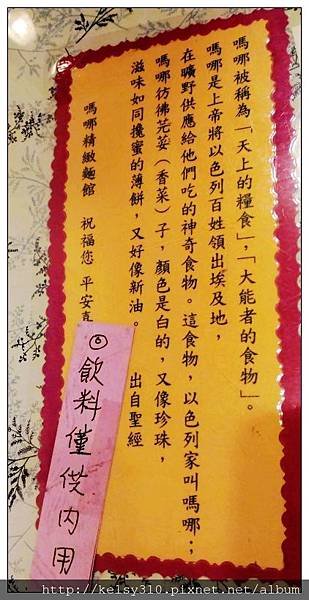 嗎哪被稱為「天上的糧食」,「大能者的食物」。
嗎哪是上帝將以色列百姓領出埃及地,
在曠野供應給他們吃的神奇食物。這食物,以色列家叫嗎哪;
嗎哪彷彿芫荽(香菜)子,顏色是白的,又像珍珠,
滋味如同攙蜜的薄餅,又好像新油。 出自聖經
嗎哪精緻麵館 祝福您 平安喜
◎飲料僅供內用
http://keisy310.pixnet.net/album